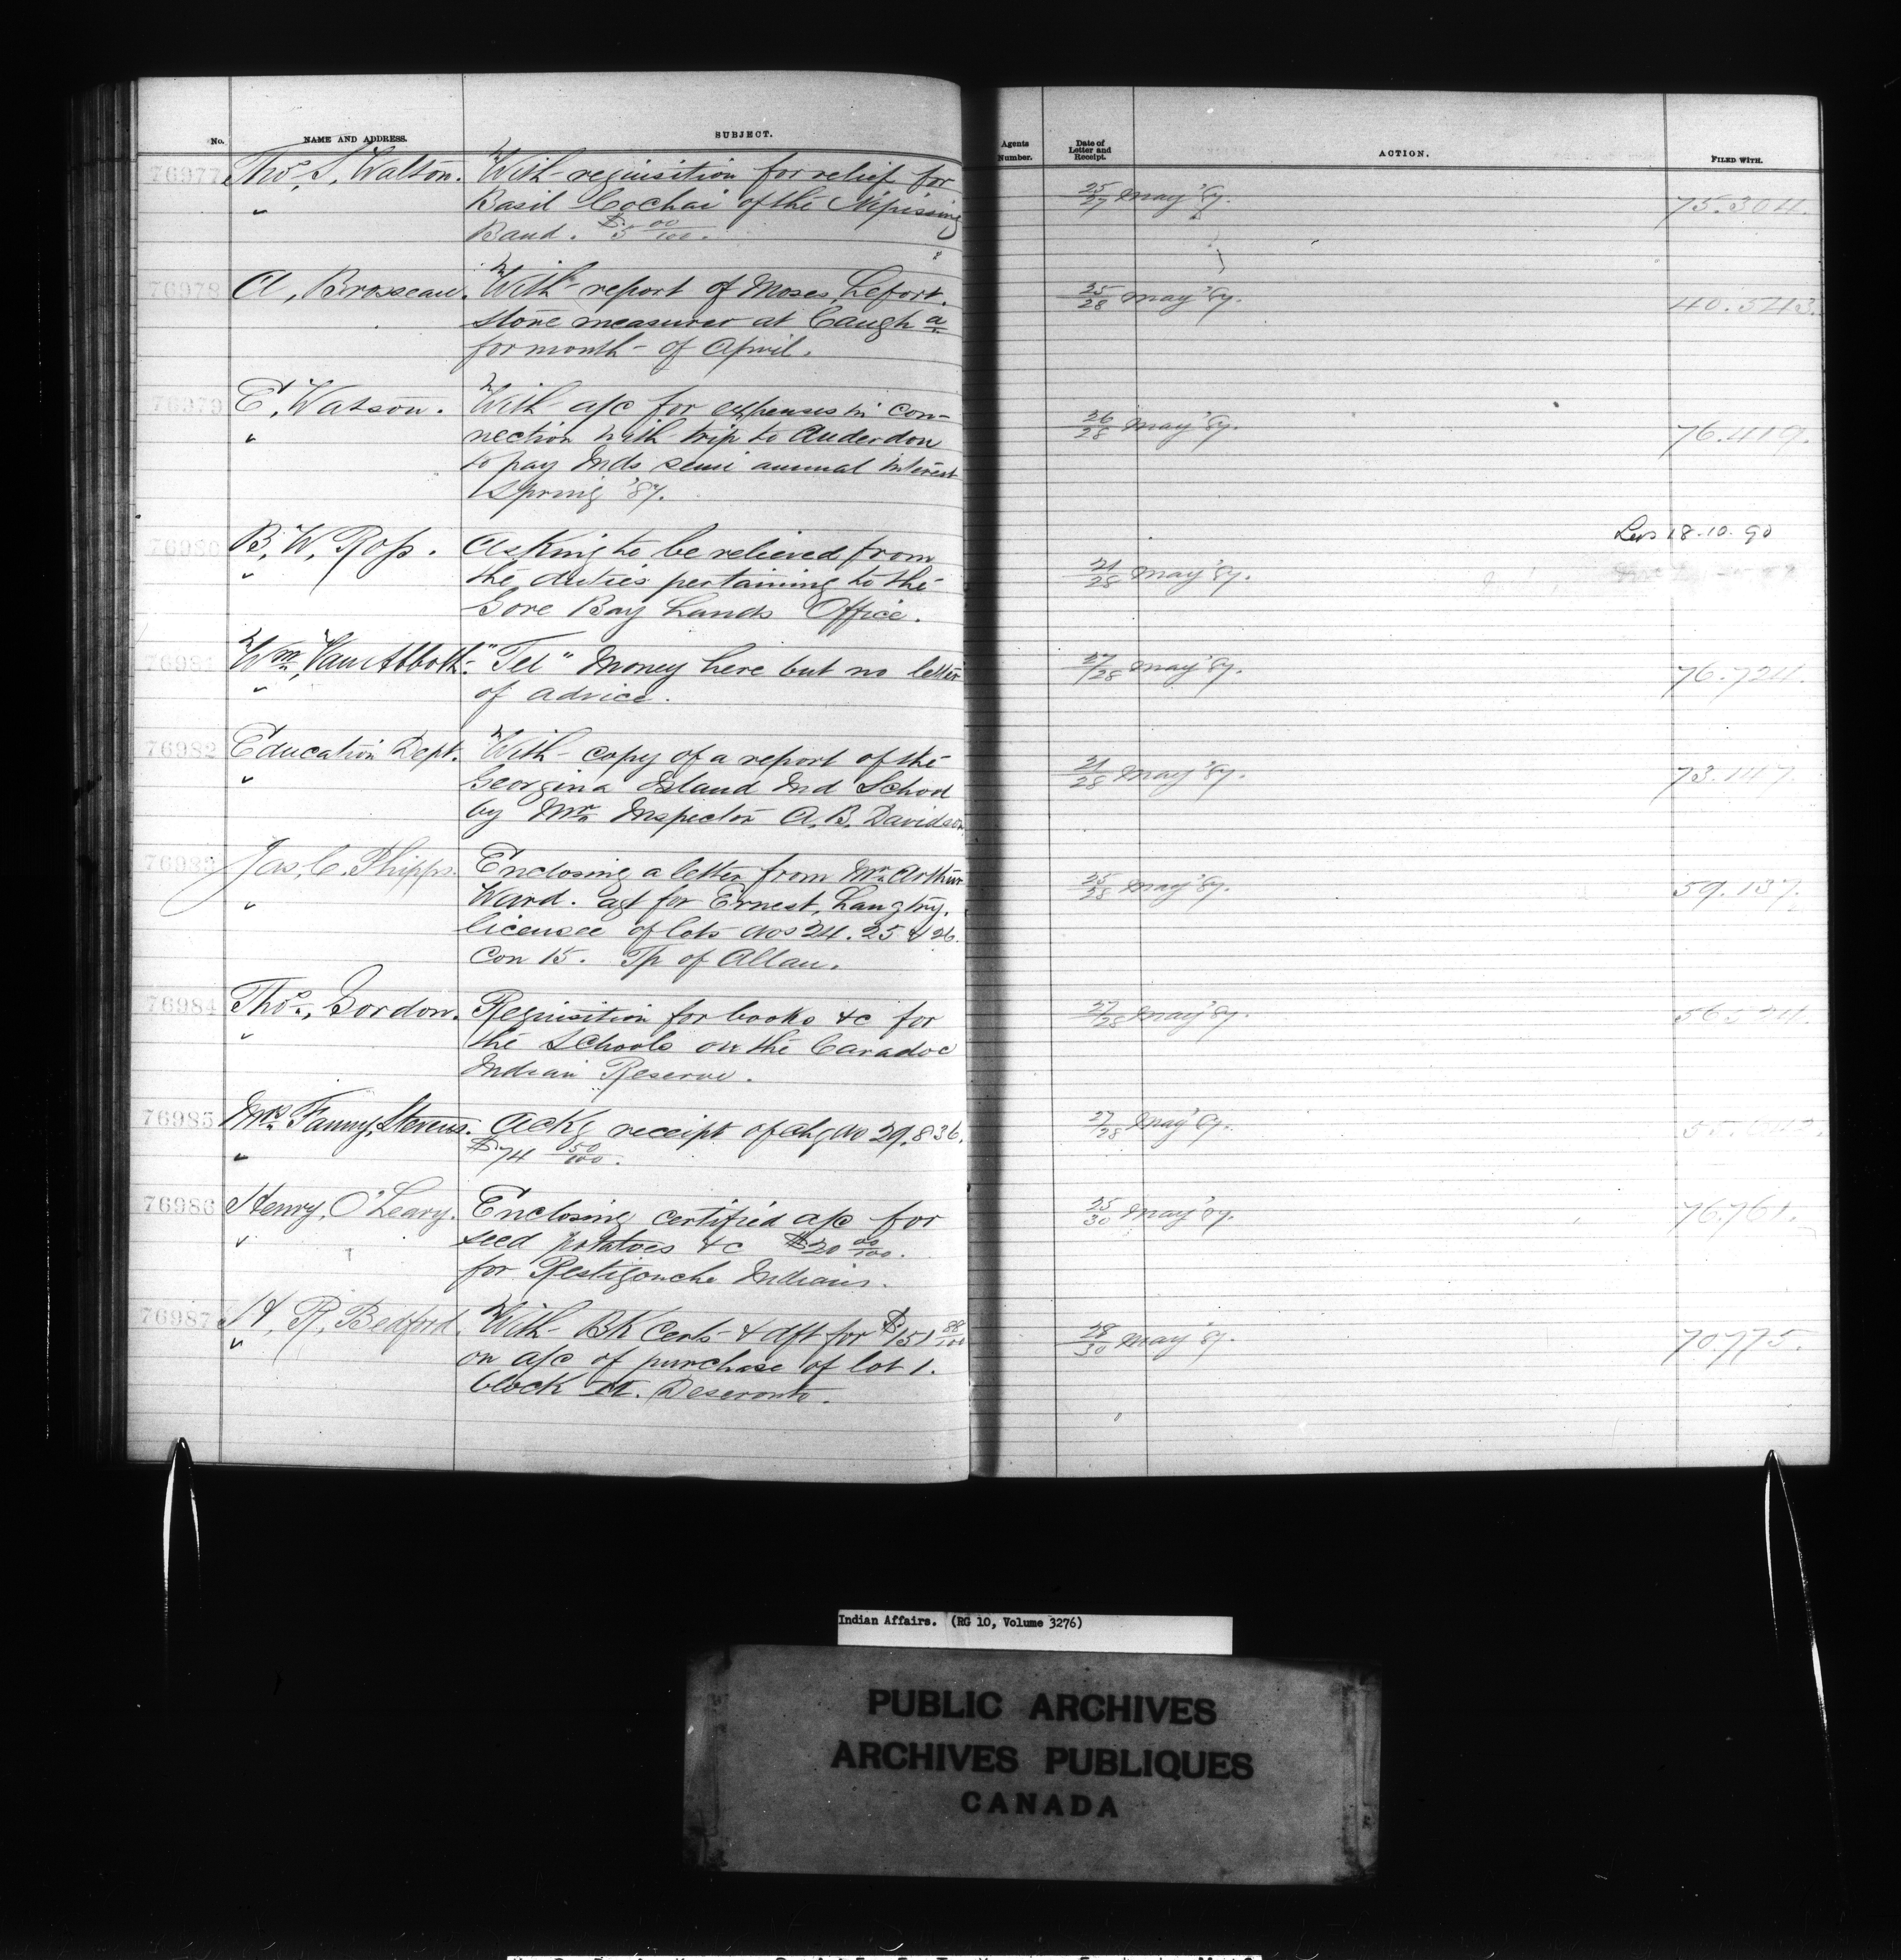 No. NAME AND ADDRESS. SUBJECT. Agents Number. Date of Letter and Receipt. ACTION. FILED WITH.
76977 Thos. S. Walton. With requisition for relief for
" Basil Cochai of the Nipissing 25/27 May '87. 75.304.
Band. $5 00/100.
76978 A. Brosseau. With report of Moses Lefort. 25/28 May '87. 40.543.
stone measurer at Caugh a
for month of April.
76979 E. Watson. With a/c for expenses in con-
" nection with trip to Anderdon 26/28 May '87. 76.419.
to pay Inds semi annual interest
Spring '87.
Les 18.10.90
76980 B. W. Ross. Asking to be relieved from
" the duties pertaining to the 21/28 May '87.
Gore Bay Lands Office.
76981 Wm. Van Abbott. "Tel" Money here but no letter 27/28 May '87. 76.724.
" of advice.
76982 Education Dept. With copy of a report of the
" Georgina Island Ind School 21/28 May '87. 73.147.
by Mr. Inspector A. B. Davidson
76983 Jas. C. Phipps. Enclosing a letter from Mr. Arthur
" Ward. agt for Ernest Langtry. 25/28 May '87. 59.137.
licensee of lots Nos 24. 25 & 26.
Con 15. Tp of Allan.
76984 Thos. Gordon. Requisition for books &c for 27/28 May '87.
" the Schools on the Caradoc
Indian Reserve.
76985 Mrs. Fanny Stevens. Ackg receipt of chq No 29.836. 27/28 May '87.
" $74 50/100.
76986 Henry O'Leary. Enclosing certified a/c for 25/30 May '87. 76.761.
" seed potatoes &c $20 00/100.
for Restigouche Indians.
76987 H. R. Bedford. With Bk Certs & dft for $151 88/100 28/30 May '87. 70.775.
" on a/c of purchase of lot 1.
block Deseronto.
Indian Affairs. (RG 10, Volume 3276)
PUBLIC ARCHIVES
ARCHIVES PUBLIQUES
CANADA